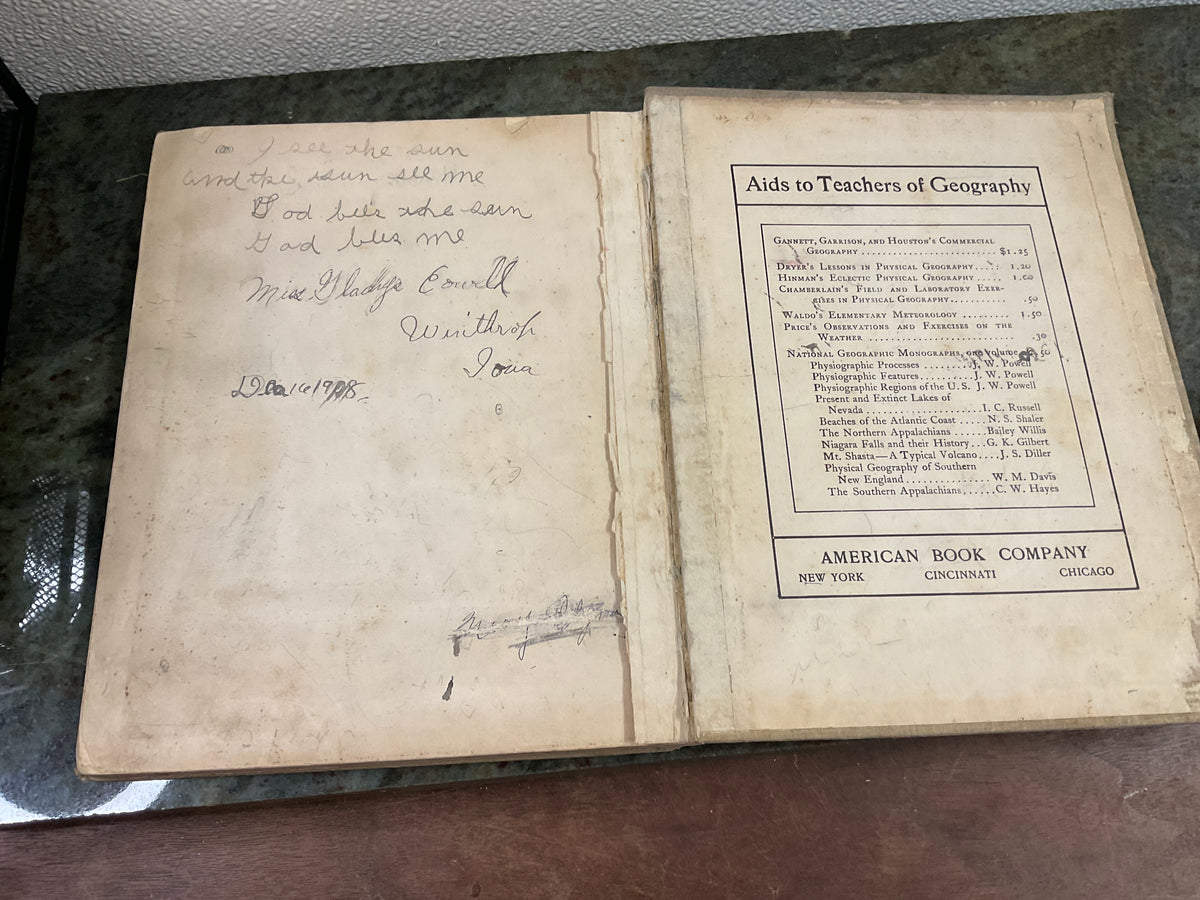 I see the sun
and the sun see me
God bles the sun
God bles me
Miss Gladys Cowell
Winthrop
Iowa
Aids to Teachers of Geography
Gannett, Garrison, and Houston's Commercial
Geography .......................... $1.25
Dryer's Lessons in Physical Geography..... 1.20
Hinman's Eclectic Physical Geography ..... 1.00
Chamberlain's Field and Laboratory Exer-
cises in Physical Geography........... .50
Waldo's Elementary Meteorology ......... 1.50
Price's Observations and Exercises on the
Weather .............................. .30
National Geographic Monographs, one volume, 2.50
Physiographic Processes .........J. W. Powell
Physiographic Features..........J. W. Powell
Physiographic Regions of the U.S. J. W. Powell
Present and Extinct Lakes of
Nevada ....................I. C. Russell
Beaches of the Atlantic Coast .....N. S. Shaler
The Northern Appalachians ......Bailey Willis
Niagara Falls and their History...G. K. Gilbert
Mt. Shasta—A Typical Volcano....J. S. Diller
Physical Geography of Southern
New England...............W. M. Davis
The Southern Appalachians......C. W. Hayes
AMERICAN BOOK COMPANY
NEW YORK CINCINNATI CHICAGO